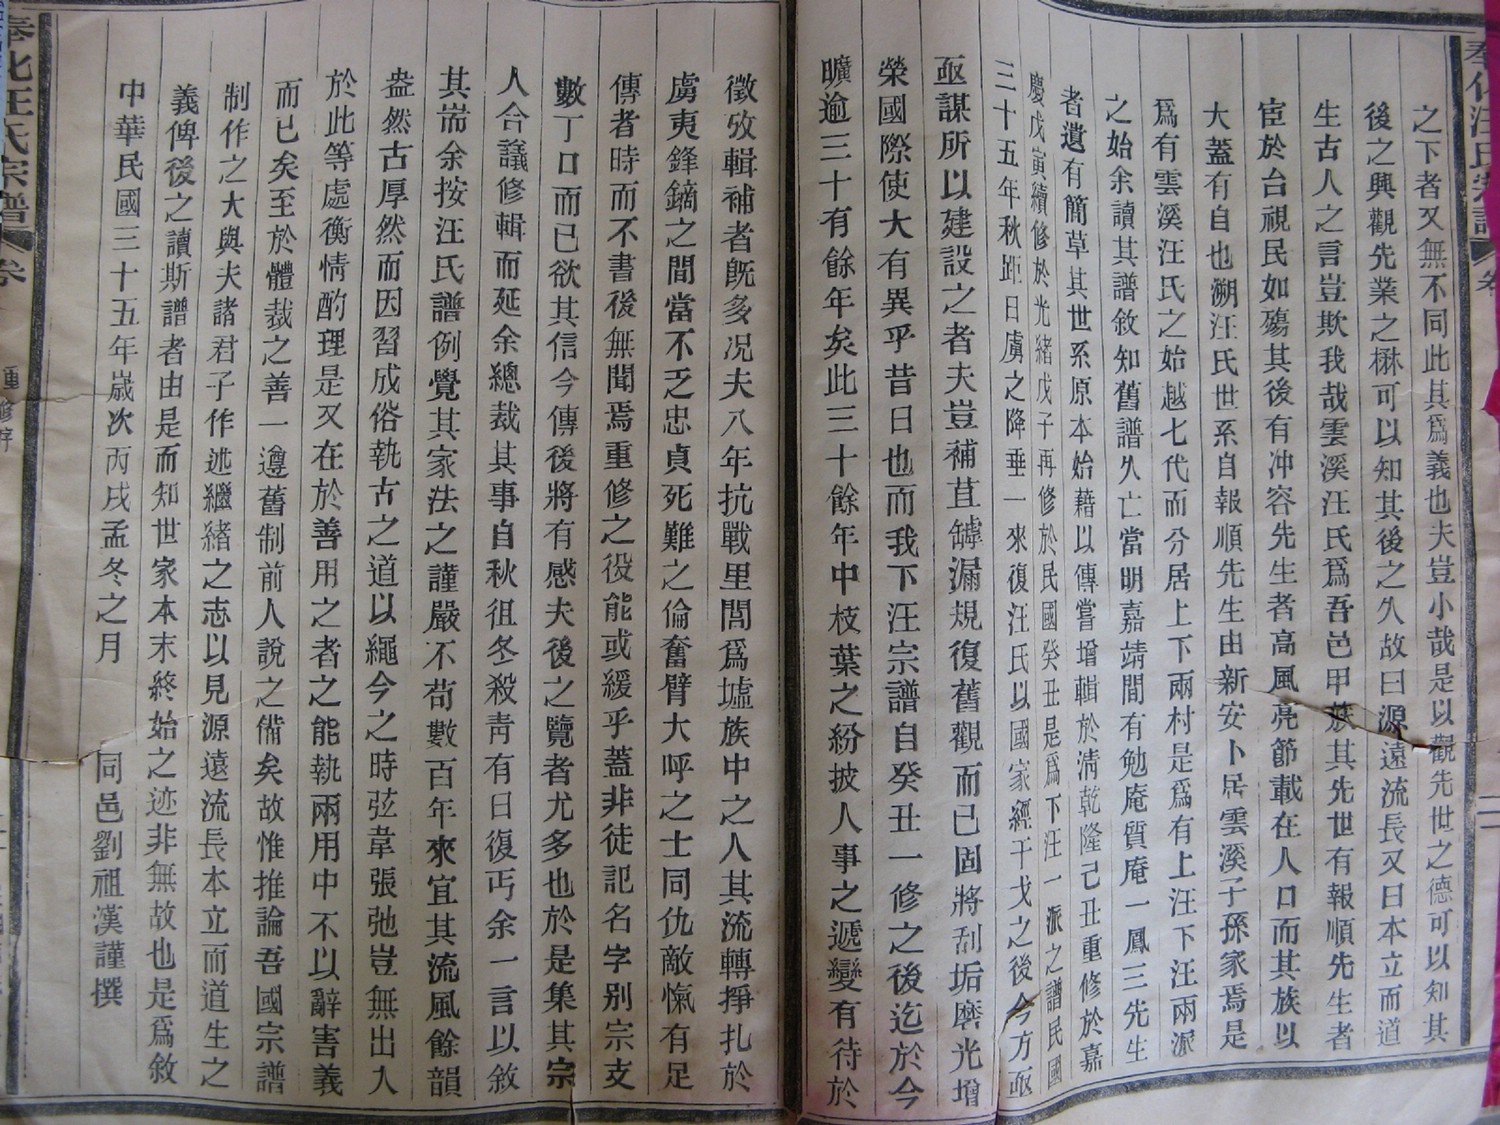 奉化汪氏宗譜
卷
之下者又無不同此其爲義也夫豈小哉是以觀先世之德可以知其
後之興觀先業之楙可以知其後之久故曰源遠流長又曰本立而道
生古人之言豈欺我哉雲溪汪氏爲吾邑甲族其先世有報順先生者
宦於台視民如殤其後有冲容先生者高風亮節載在人口而其族以
大蓋有自也溯汪氏世系自報順先生由新安卜居雲溪子孫家焉是
爲有雲溪汪氏之始越七代而分居上下兩村是爲有上汪下汪兩派
之始余讀其譜敘知舊譜久亡當明嘉靖間有勉庵質庵一鳳三先生
者遺有簡草其世系原本始藉以傳嘗增輯於清乾隆己丑重修於嘉
慶戊寅續修於光緒戊子再修於民國癸丑是爲下汪一派之譜民國
三十五年秋距日虜之降垂一來復汪氏以國家經干戈之後今方亟
亟謀所以建設之者夫豈補苴罅漏規復舊觀而已固將刮垢磨光增
榮國際使大有異乎昔日也而我下汪宗譜自癸丑一修之後迄於今
曠逾三十有餘年矣此三十餘年中枝葉之紛披人事之遞變有待於
徵攷輯補者旣多况夫八年抗戰里閭爲墟族中之人其流轉掙扎於
虜夷鋒鏑之間當不乏忠貞死難之倫奮臂大呼之士同仇敵愾有足
傳者時而不書後無聞焉重修之役能或緩乎蓋非徒記名字别宗支
數丁口而已欲其信今傳後將有感夫後之覽者尤多也於是集其宗
人合議修輯而延余總裁其事自秋徂冬殺靑有日復丐余一言以敘
其耑余按汪氏譜例覺其家法之謹嚴不苟數百年來宜其流風餘韻
盎然古厚然而因習成俗執古之道以繩今之時弦韋張弛豈無出入
於此等處衡情酌理是又在於善用之者之能執兩用中不以辭害義
而已矣至於體裁之善一遵舊制前人說之備矣故惟推論吾國宗譜
制作之大與夫諸君子作述繼緒之志以見源遠流長本立而道生之
義俾後之讀斯譜者由是而知世家本末終始之迹非無故也是爲敘
中華民國三十五年歲次丙戌孟冬之月　同邑劉祖漢謹撰
奉化汪氏宗譜
卷
重修序